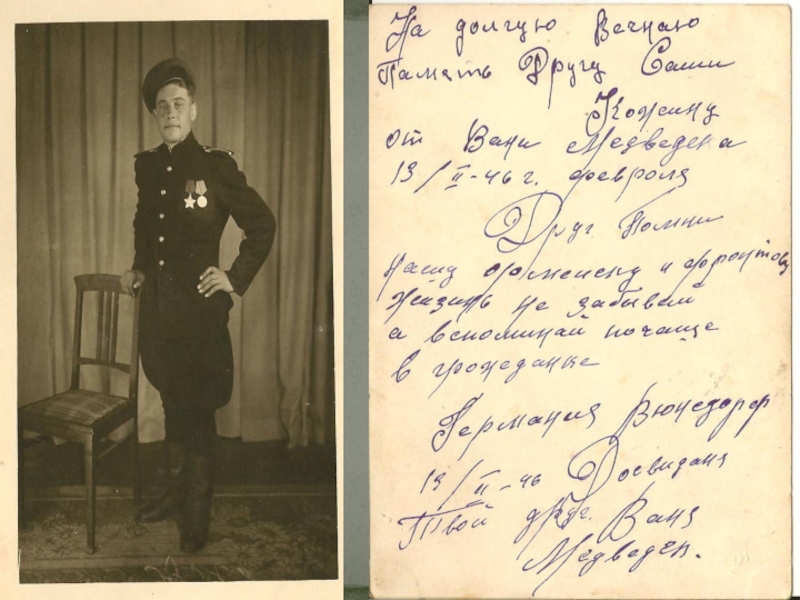 На долгую Вечнаю
Память Другу Саши
Кожину
от Вани Медведева
13/II-46 г. февроля
Друг Помни
нашу и фронтову
жизнь не забывай
а вспоминай почаще
в грожеданке
Германия Вюнсдорф
13/II-46 Досвиданя
Твой друг. Ваня
Медведев.